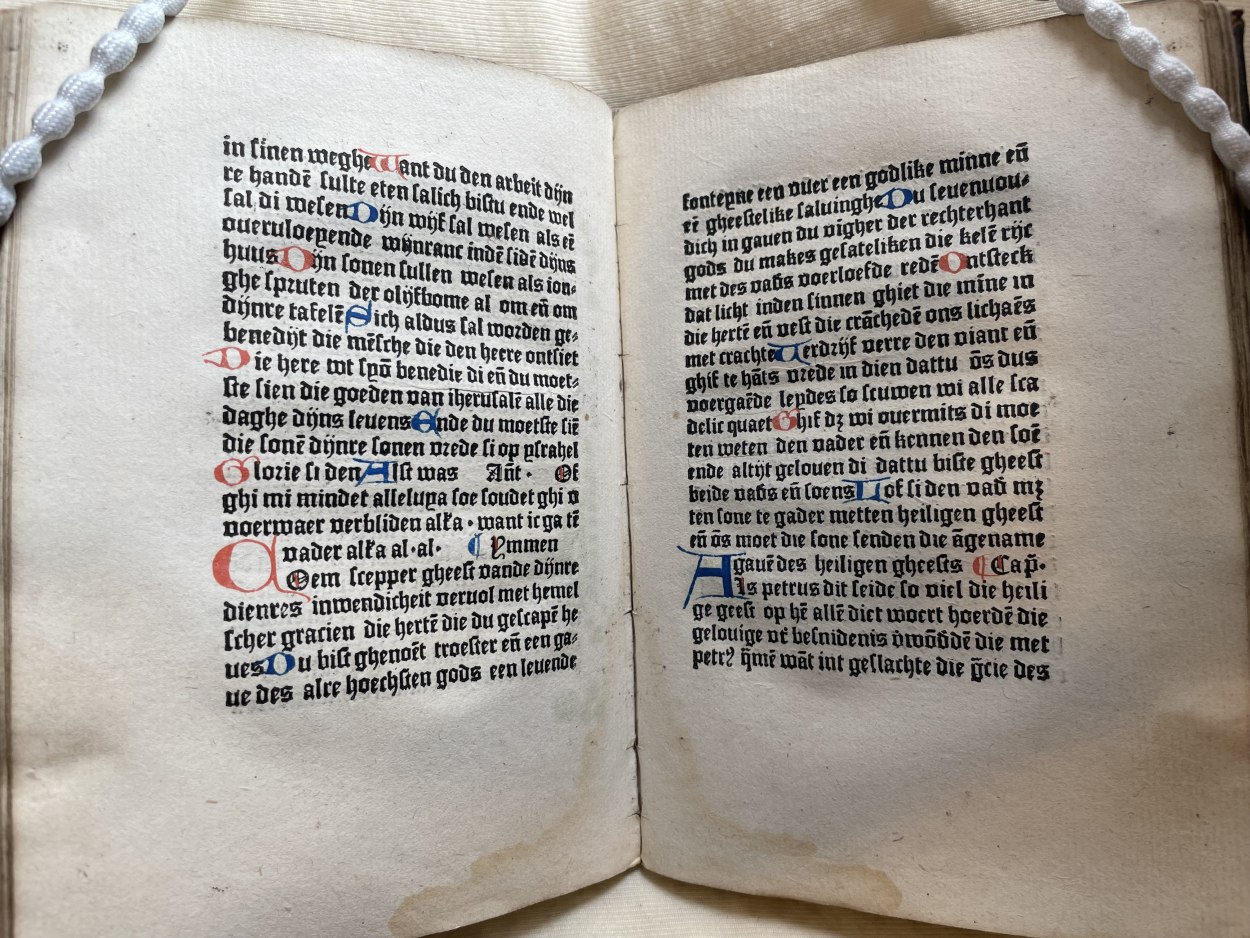 in sinen weghe Want du den arbeit dijn
re handē sulte eten salich bistu ende wel
sal di wesen Dijn wijf sal wesen als eē
oueruloeyende wijnranc indē sidē dijns
huus Dijn sonen sullen wesen als ion-
ghe spruten der olijfbome al om eñ om
dijnre tafelē Sich aldus sal worden ge-
benedijt die mēsche die den heere ontsiet
Die here wt syō benedie di eñ du moet-
ste sien die goeden van iherusalē alle die
daghe dijns leuens Ende du moetste siē
die sonē dijnre sonen vrede si op ysrahel
Glorie si den Alst was Añt. Of
ghi mi mindet alleluya soe soudet ghi v
voerwaer verbliden alľa . want ic ga tē
vader alľa al.al. ¶ Ymmen
COem scepper gheest vande dijnre
dienres inwendicheit veruol met hemel
scher gracien die hertē die du gescapē he
ues Du bist ghenoēt troester eñ een ga-
ue des alre hoechsten gods een leuende
fonteyne een vuer een godlike minne eñ
eē gheestelike saluinghe Du seuenuou-
dich in gauen du vigher der rechterhant
gods du makes gesateliken die kelē rijc
met des vaďs voerloefde redē Ontsteck
dat licht inden sinnen ghiet die mīne in
die hertē eñ vest die crācheďē ons lichaēs
met crachte Uerdrijf verre den viant eñ
ghif te hāts vrede in dien dattu ōs dus
voergaēde leydes so scuwen wi alle sca
delic quaet Ghif dꝫ wi ouermits di moe
ten weten den vader eñ kennen den soē
ende altijt gelouen di dattu biste gheest
beide vaďs eñ soens Lof si den vaď mꝫ
ten sone te gader metten heiligen gheest
eñ ōs moet die sone senden die āgename
gauē des heiligen gheests ¶ Cap̄.
Als petrus dit seide so viel die heili
ge geest op hē allē dict woert hoerdē die
gelouige vť besnidenis v̓wōďdē die met
petrꝰ q̄mē wāt int geslachte die ḡcie des